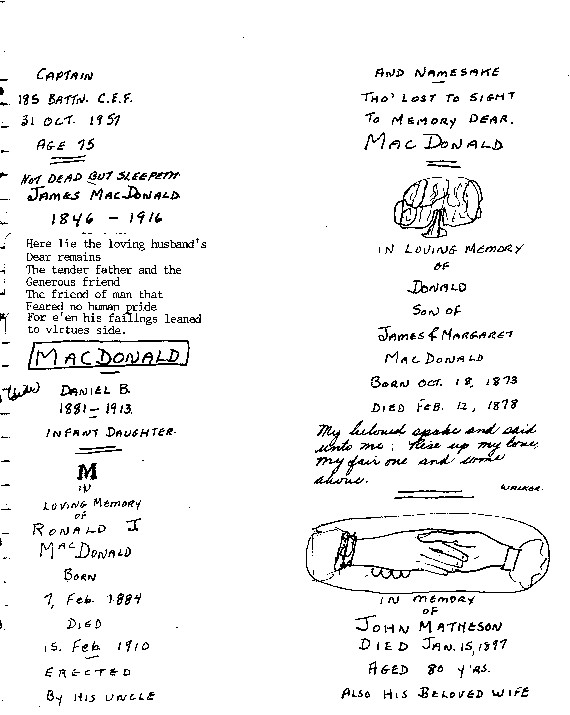 CAPTAIN
185 BATTN. C.E.F.
31 OCT. 1957
AGE 75
NOT DEAD BUT SLEEPETH
JAMES MACDONALD
1846 - 1916
Here lie the loving husband's
Dear remains
The tender father and the
Generous friend
The friend of man that
Feared no human pride
For e'en his failings leaned
to virtues side.
MACDONALD
DANIEL B.
1881 - 1913
INFANT DAUGHTER.
M
IN
LOVING MEMORY
OF
RONALD J
MACDONALD
BORN
7, Feb. 1884
DIED
15. Feb 1910
ERECTED
BY HIS UNCLE
AND NAMESAKE
THO' LOST TO SIGHT
TO MEMORY DEAR.
MAC DONALD
IN LOVING MEMORY
OF
DONALD
SON OF
JAMES & MARGARET
MAC DONALD
BORN OCT. 18, 1873
DIED FEB. 12, 1878
My beloved spake and said
unto me; Rise up my love,
my fair one and come
above.
WALKER.
IN MEMORY
OF
JOHN MATHESON
DIED JAN. 15, 1897
AGED 80 YRS.
ALSO HIS BELOVED WIFE